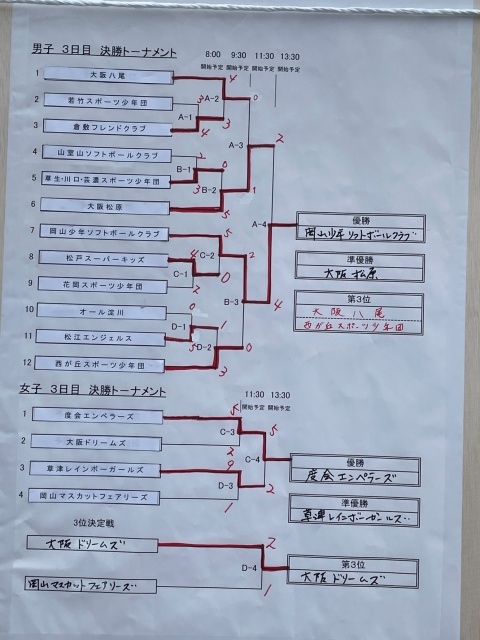 男子 3日目 決勝トーナメント
8:00 9:30 11:30 13:30
開始予定 開始予定 開始予定 開始予定
1 大阪八尾 4
A-2 0
2 若竹スポーツ少年団 3
A-1 3
3 倉敷フレンドクラブ 4
A-3 2
4 山室山ソフトボールクラブ 2
B-1 0
5 草生・川口・芸濃スポーツ少年団 3
B-2 1
6 大阪松原 5
A-4
優勝
岡山少年ソフトボールクラブ
7 岡山少年ソフトボールクラブ 5
C-2 2
8 松戸スーパーキッズ 4
C-1 0
9 花岡スポーツ少年団 2
B-3 4
準優勝
大阪松原
第3位
大阪八尾
西が丘スポーツ少年団
10 オール淀川 0
D-1 1
11 松江エンジェルス 5
D-2 0
12 西が丘スポーツ少年団 3
女子 3日目 決勝トーナメント
11:30 13:30
開始予定 開始予定
1 度会エンペラーズ 5
C-3 5
2 大阪ドリームズ 2
C-4
3 草津レインボーガールズ 9
D-3 2
4 岡山マスカットフェアリーズ 1
優勝
度会エンペラーズ
準優勝
草津レインボーガールズ
3位決定戦
大阪ドリームズ 2
D-4
第3位
大阪ドリームズ
岡山マスカットフェアリーズ 1